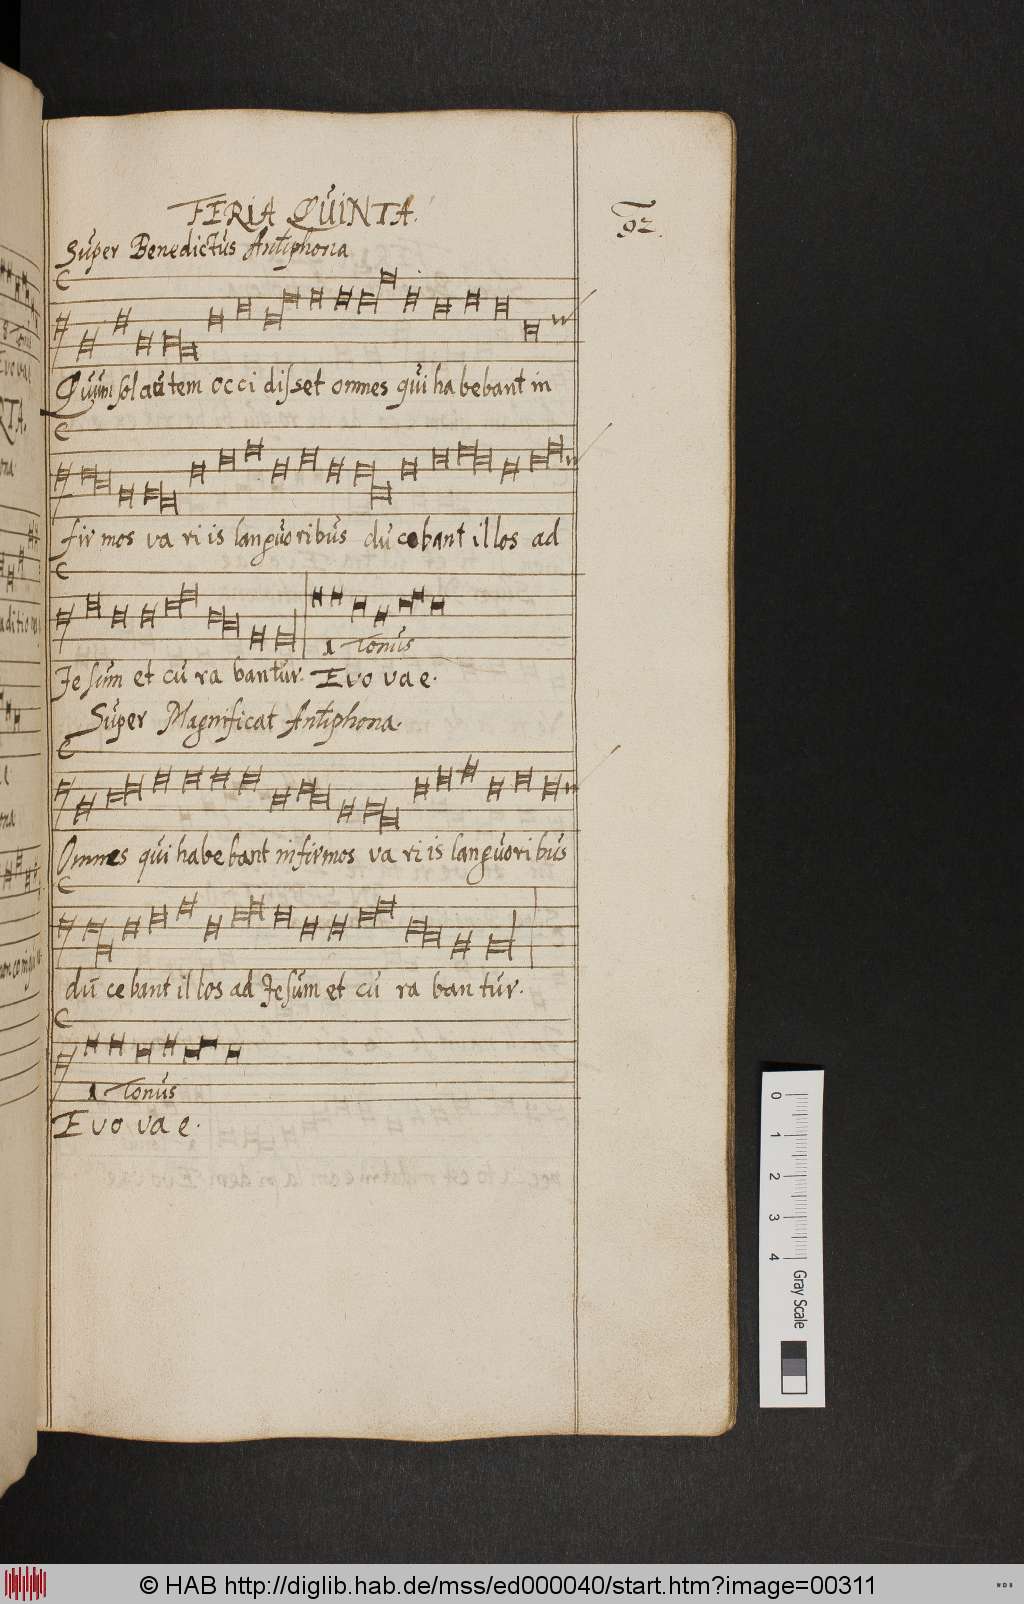 FERIA QUINTA.
92.
Super Benedictus Antiphona
Quum sol autem occi disset omnes qui ha bebant in
fir mos va ri is languoribus du cebant il los ad
1 Tonus
Je sum et cu ra bantur. Evo vae.
Super Magnificat Antiphona.
Omnes qui habe bant infirmos va ri is languori bus
du ce bant il los ad Jesum et cu ra ban tur.
1 Tonus
E vo va e.
0 1 2 3 4 Gray Scale
© HAB http://diglib.hab.de/mss/ed000040/start.htm?image=00311